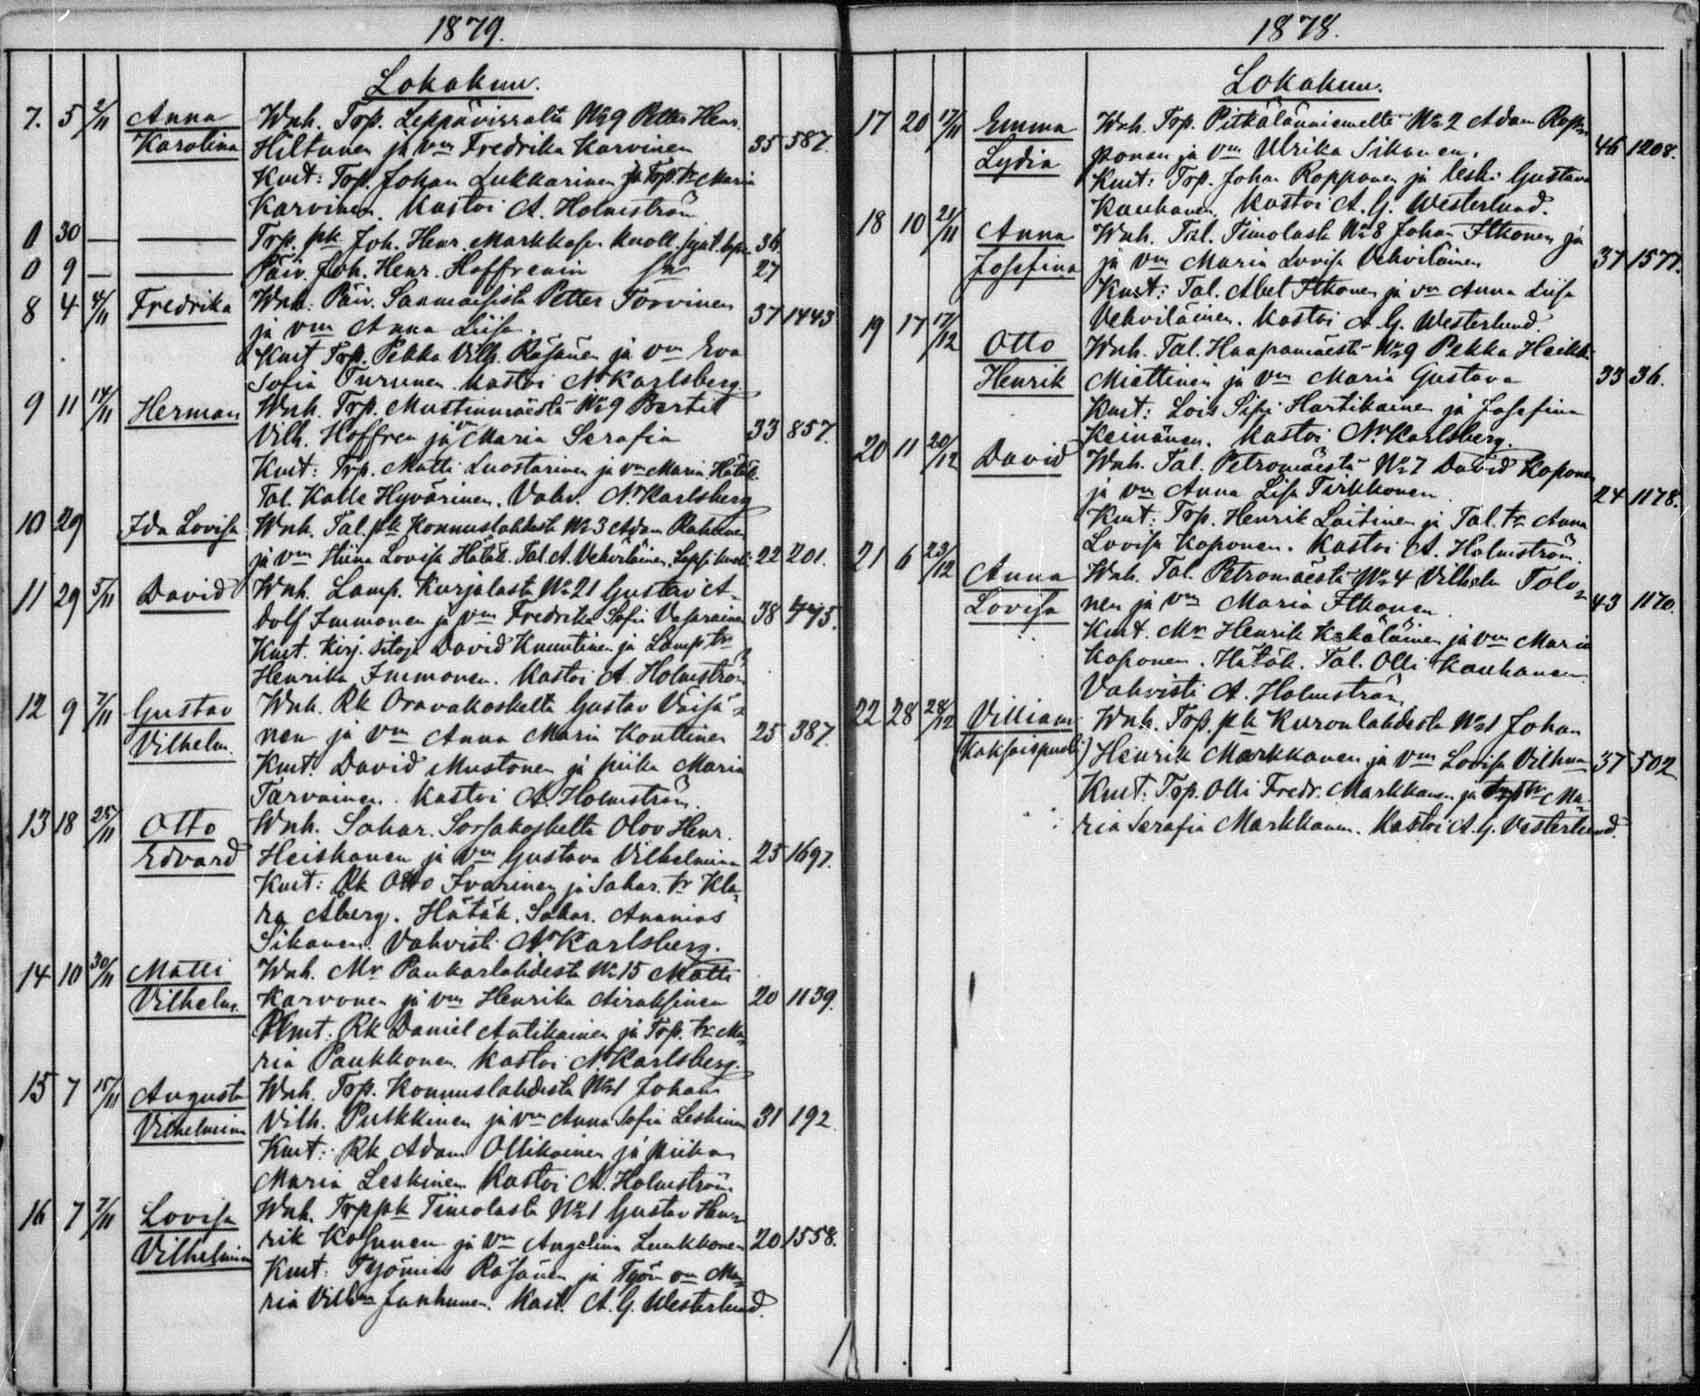 1879.
Lokakuu.
7. 5 2/11 Anna Wnh. Trp. Leppävirralta No 9 Petter Henr.
Karolina Hiltunen ja vm Fredrika Karvinen 35 587.
Kmt: Trp. Johan Lukkarinen ja Trp. tr Maria
Karvinen. Kastoi A. Holmström
0 30 — — Trp. pk Joh. Henr. Markkasen kuoll. synt. lapsi 36
0 9 — — Päiv. Joh. Henr. Hoffrenin 27
8 4 4/11 Fredrika Wnh. Päiv. Saamaisista Petter Törvinen 37 1443
ja vm Anna Liisa.
Kmt Trp. Pekka Vilh. Räsänen ja vm Eva
Sofia Turunen. Kastoi N. Karlsberg.
9 11 14/11 Herman Wnh. Trp. Mustinmäestä No 9 Bertil
Vilh. Hoffren ja vm Maria Serafia 33 857.
Kmt: Trp. Matti Luostarinen ja vm Maria. Hätäk.
Tal. Kalle Hyvärinen. Vahv. N. Karlsberg
10 29 Ida Lovisa Wnh. Tal. pk Konnuslahdesta No 3 Adam
ja vm Stiina Lovisa. Hätäk. Tal. A. Vehviläinen. Lapsi kuoli 22 201.
11 29 5/11 David Wnh. Lamp. Kurjalasta No 21 Gustav A-
dolf Immonen ja vm Fredrika Sofia 38 445.
Kmt. Kirj. sitoja David Knuutinen ja Lamp. tr
Henrika Immonen. Kastoi A. Holmström
12 9 7/11 Gustav Wnh. Rk Oravakoskelta Gustav Väisä-
Vilhelm. nen ja vm Anna Maria Konttinen 25 387.
Kmt. David Mustonen ja piika Maria
Tarvainen. Kastoi A. Holmström.
13 18 25/11 Otto Wnh. Sahar. Sorsakoskelta Olov Henr.
Edvard Heiskanen ja vm Gustava Vilhelmina 25 1697.
Kmt: Rk Otto Ivarinen ja Sahar. tr Kla-
ra Åberg. Hätäk. Sahar. Ananias
Sikanen. Vahvisti N. Karlsberg.
14 10 30/11 Matti Wnh. Mr Paukarlahdesta No 15 Matti
Vilhelm. Karvonen ja vm Henrika Airaksinen 20 1139.
Kmt. Rk Daniel Antikainen ja Trp. tr Ma-
ria Paukkonen. Kastoi N. Karlsberg.
15 7 15/11 Augusta Wnh. Trp. Konnuslahdesta No 1 Johan
Vilhelmiina Vilh. Pulkkinen ja vm Anna Sofia Leskinen 31 192
Kmt: Rk Adam Ollikainen ja piika
Maria Leskinen. Kastoi A. Holmström.
16 7 7/11 Lovisa Wnh. Trp. pk Timolasta No 1 Gustav Hen-
Vilhelmina rik Kosunen ja vm Angelina Luukkonen 20 1558.
Kmt. Työmies Räsänen ja Työm vm Ma-
ria Vilhna Janhunen. Kast. A. G. Westerlund.
1878.
Lokakuu.
17 20 17/11 Emma Wnh. Trp. Pitkälänniemeltä No 2 Adam Rop-
Lydia ponen ja vm Ulrika Sikanen. 46 1208.
Kmt: Trp. Johan Ropponen ja leski Gustava
Kauhanen. Kastoi A. G. Westerlund.
18 10 21/11 Anna Wnh. Tal. Timolasta No 8 Johan Itkonen ja
Josefina ja vm Maria Lovisa Vehviläinen 37 1577.
Kmt: Tal. Abel Itkonen ja vm Anna Liisa
Vehviläinen. Kastoi A. G. Westerlund.
19 17 17/12 Otto Wnh. Tal. Haapamäestä No 9 Pekka Heikki
Henrik Miettinen ja vm Maria Gustava 33 36.
Kmt: Lois Sipi Hartikainen ja Josefina
Keinänen. Kastoi N. Karlsberg.
20 11 20/12 David Wnh. Tal. Petromäestä No 7 David Koponen
ja vm Anna Lisa Tirkkonen. 24 1178.
Kmt: Trp. Henrik Laitinen ja Tal. tr Anna
Lovisa Koponen. Kastoi A. Holmström.
21 6 23/12 Anna Wnh. Tal. Petromäestä No 4 Vilhelm Tolo-
Lovisa nen ja vm Maria Itkonen 43 1170.
Kmt. Mr Henrik Kekäläinen ja vm Maria
Koponen. Hätäk. Tal. Olli Kauhanen.
Vahvisti A. Holmström.
22 28 28/12 Villiam Wnh. Trp. pk Kuronlahdesta No 1 Johan
(Kaksoispuoli) Henrik Markkanen ja vm Lovisa Vilhma 37 502
Kmt: Trp. Olli Fredr. Markkanen ja Trp tr Ma-
ria Serafia Markkanen. Kastoi A. G. Vesterlund.